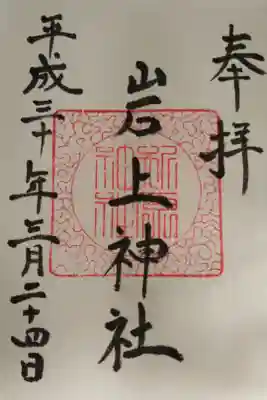 奉拝
岩上神社
平成三十年三月二十四日